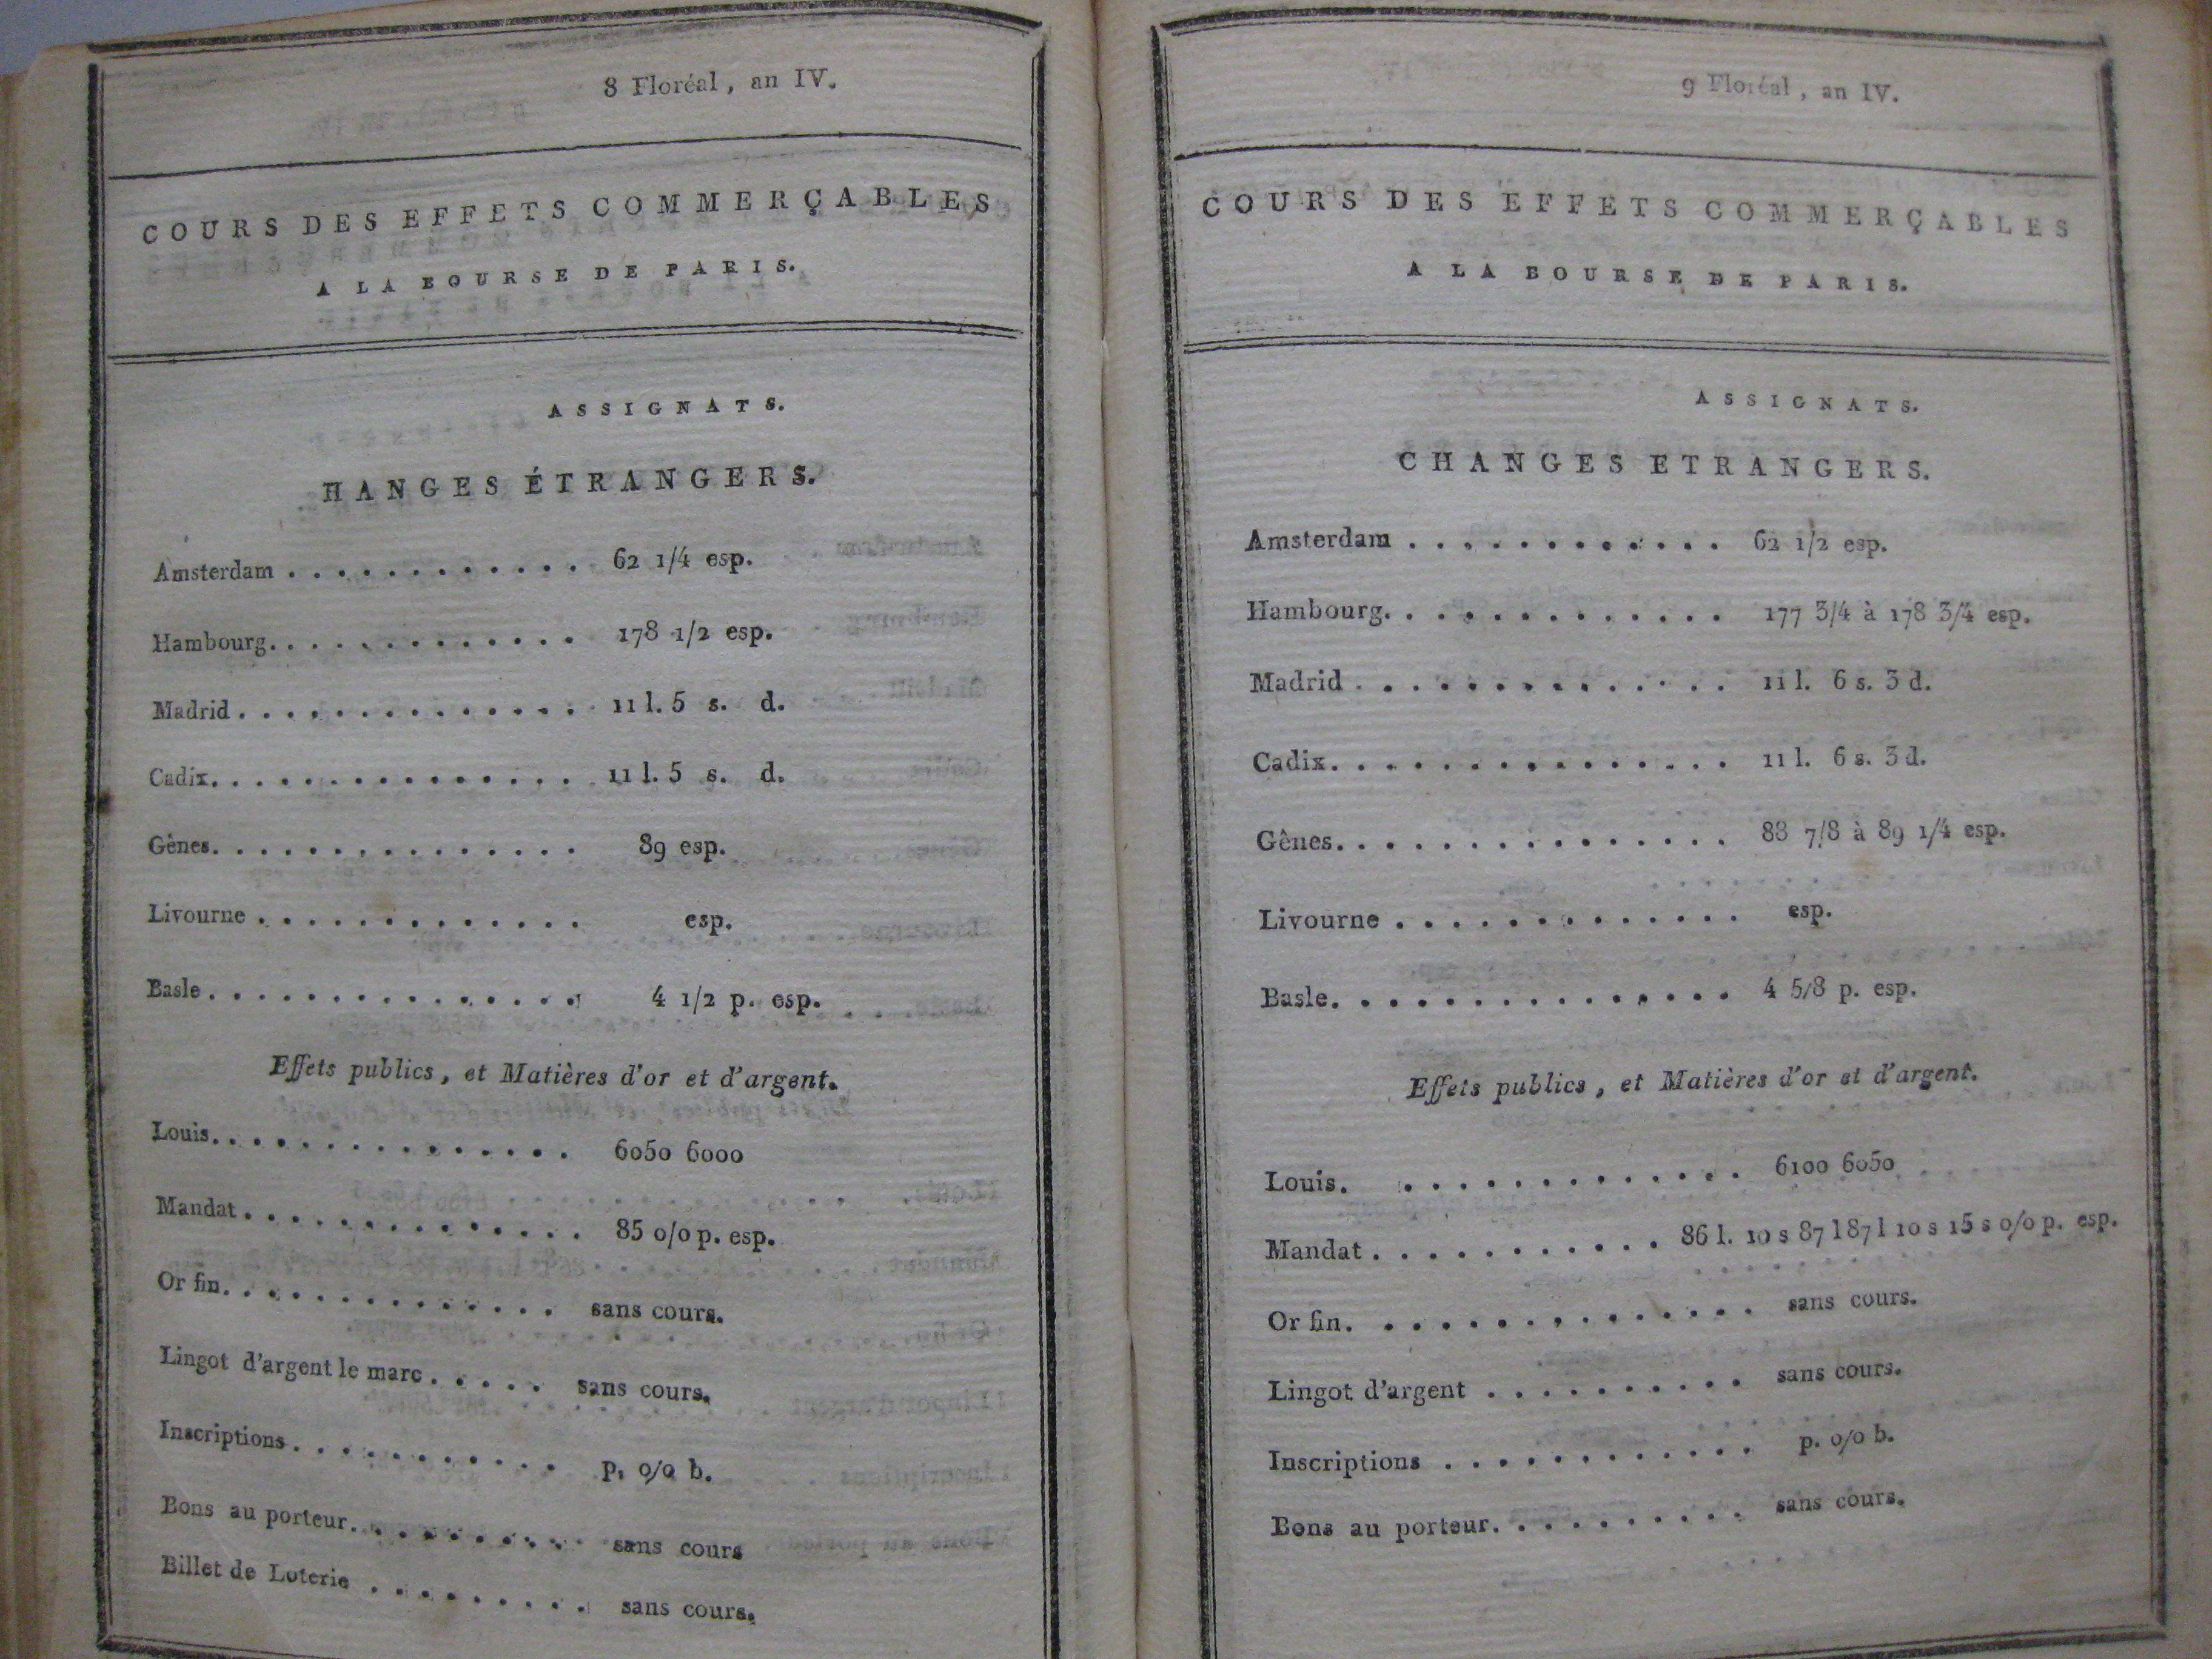 8 Floréal, an IV.
COURS DES EFFETS COMMERÇABLES
A LA BOURSE DE PARIS.
ASSIGNATS.
HANGES ÉTRANGERS.
Amsterdam . . . . . . . . . . . . 62 1/4 esp.
Hambourg. . . . . . . . . . . . . 178 1/2 esp.
Madrid . . . . . . . . . . . . . . 11 l. 5 s. d.
Cadix. . . . . . . . . . . . . . . 11 l. 5 s. d.
Gênes. . . . . . . . . . . . . . . 89 esp.
Livourne . . . . . . . . . . . . . esp.
Basle . . . . . . . . . . . . . . . 4 1/2 p. esp.
Effets publics, et Matières d'or et d'argent.
Louis. . . . . . . . . . . . . . . 6050 6000
Mandat . . . . . . . . . . . . . . 85 0/0 p. esp.
Or fin. . . . . . . . . . . . . . sans cours.
Lingot d'argent le marc . . . . . sans cours.
Inscriptions . . . . . . . . . . . p. 0/0 b.
Bons au porteur. . . . . . . . . . sans cours
Billet de Loterie . . . . . . . . . sans cours.
9 Floréal, an IV.
COURS DES EFFETS COMMERÇABLES
A LA BOURSE DE PARIS.
ASSIGNATS.
CHANGES ETRANGERS.
Amsterdam . . . . . . . . . . . . 62 1/2 esp.
Hambourg. . . . . . . . . . . . . 177 3/4 à 178 3/4 esp.
Madrid . . . . . . . . . . . . . . 11 l. 6 s. 3 d.
Cadix. . . . . . . . . . . . . . . 11 l. 6 s. 3 d.
Gênes. . . . . . . . . . . . . . . 88 7/8 à 89 1/4 esp.
Livourne . . . . . . . . . . . . . esp.
Basle. . . . . . . . . . . . . . . 4 5/8 p. esp.
Effets publics, et Matières d'or et d'argent.
Louis. . . . . . . . . . . . . . 6100 6050
Mandat . . . . . . . . . . . 86 l. 10 s 87 l 87 l 10 s 15 s 0/0 p. esp.
Or fin. . . . . . . . . . . . . . sans cours.
Lingot d'argent . . . . . . . . . . sans cours.
Inscriptions . . . . . . . . . . . . p. 0/0 b.
Bons au porteur. . . . . . . . . . sans cours.